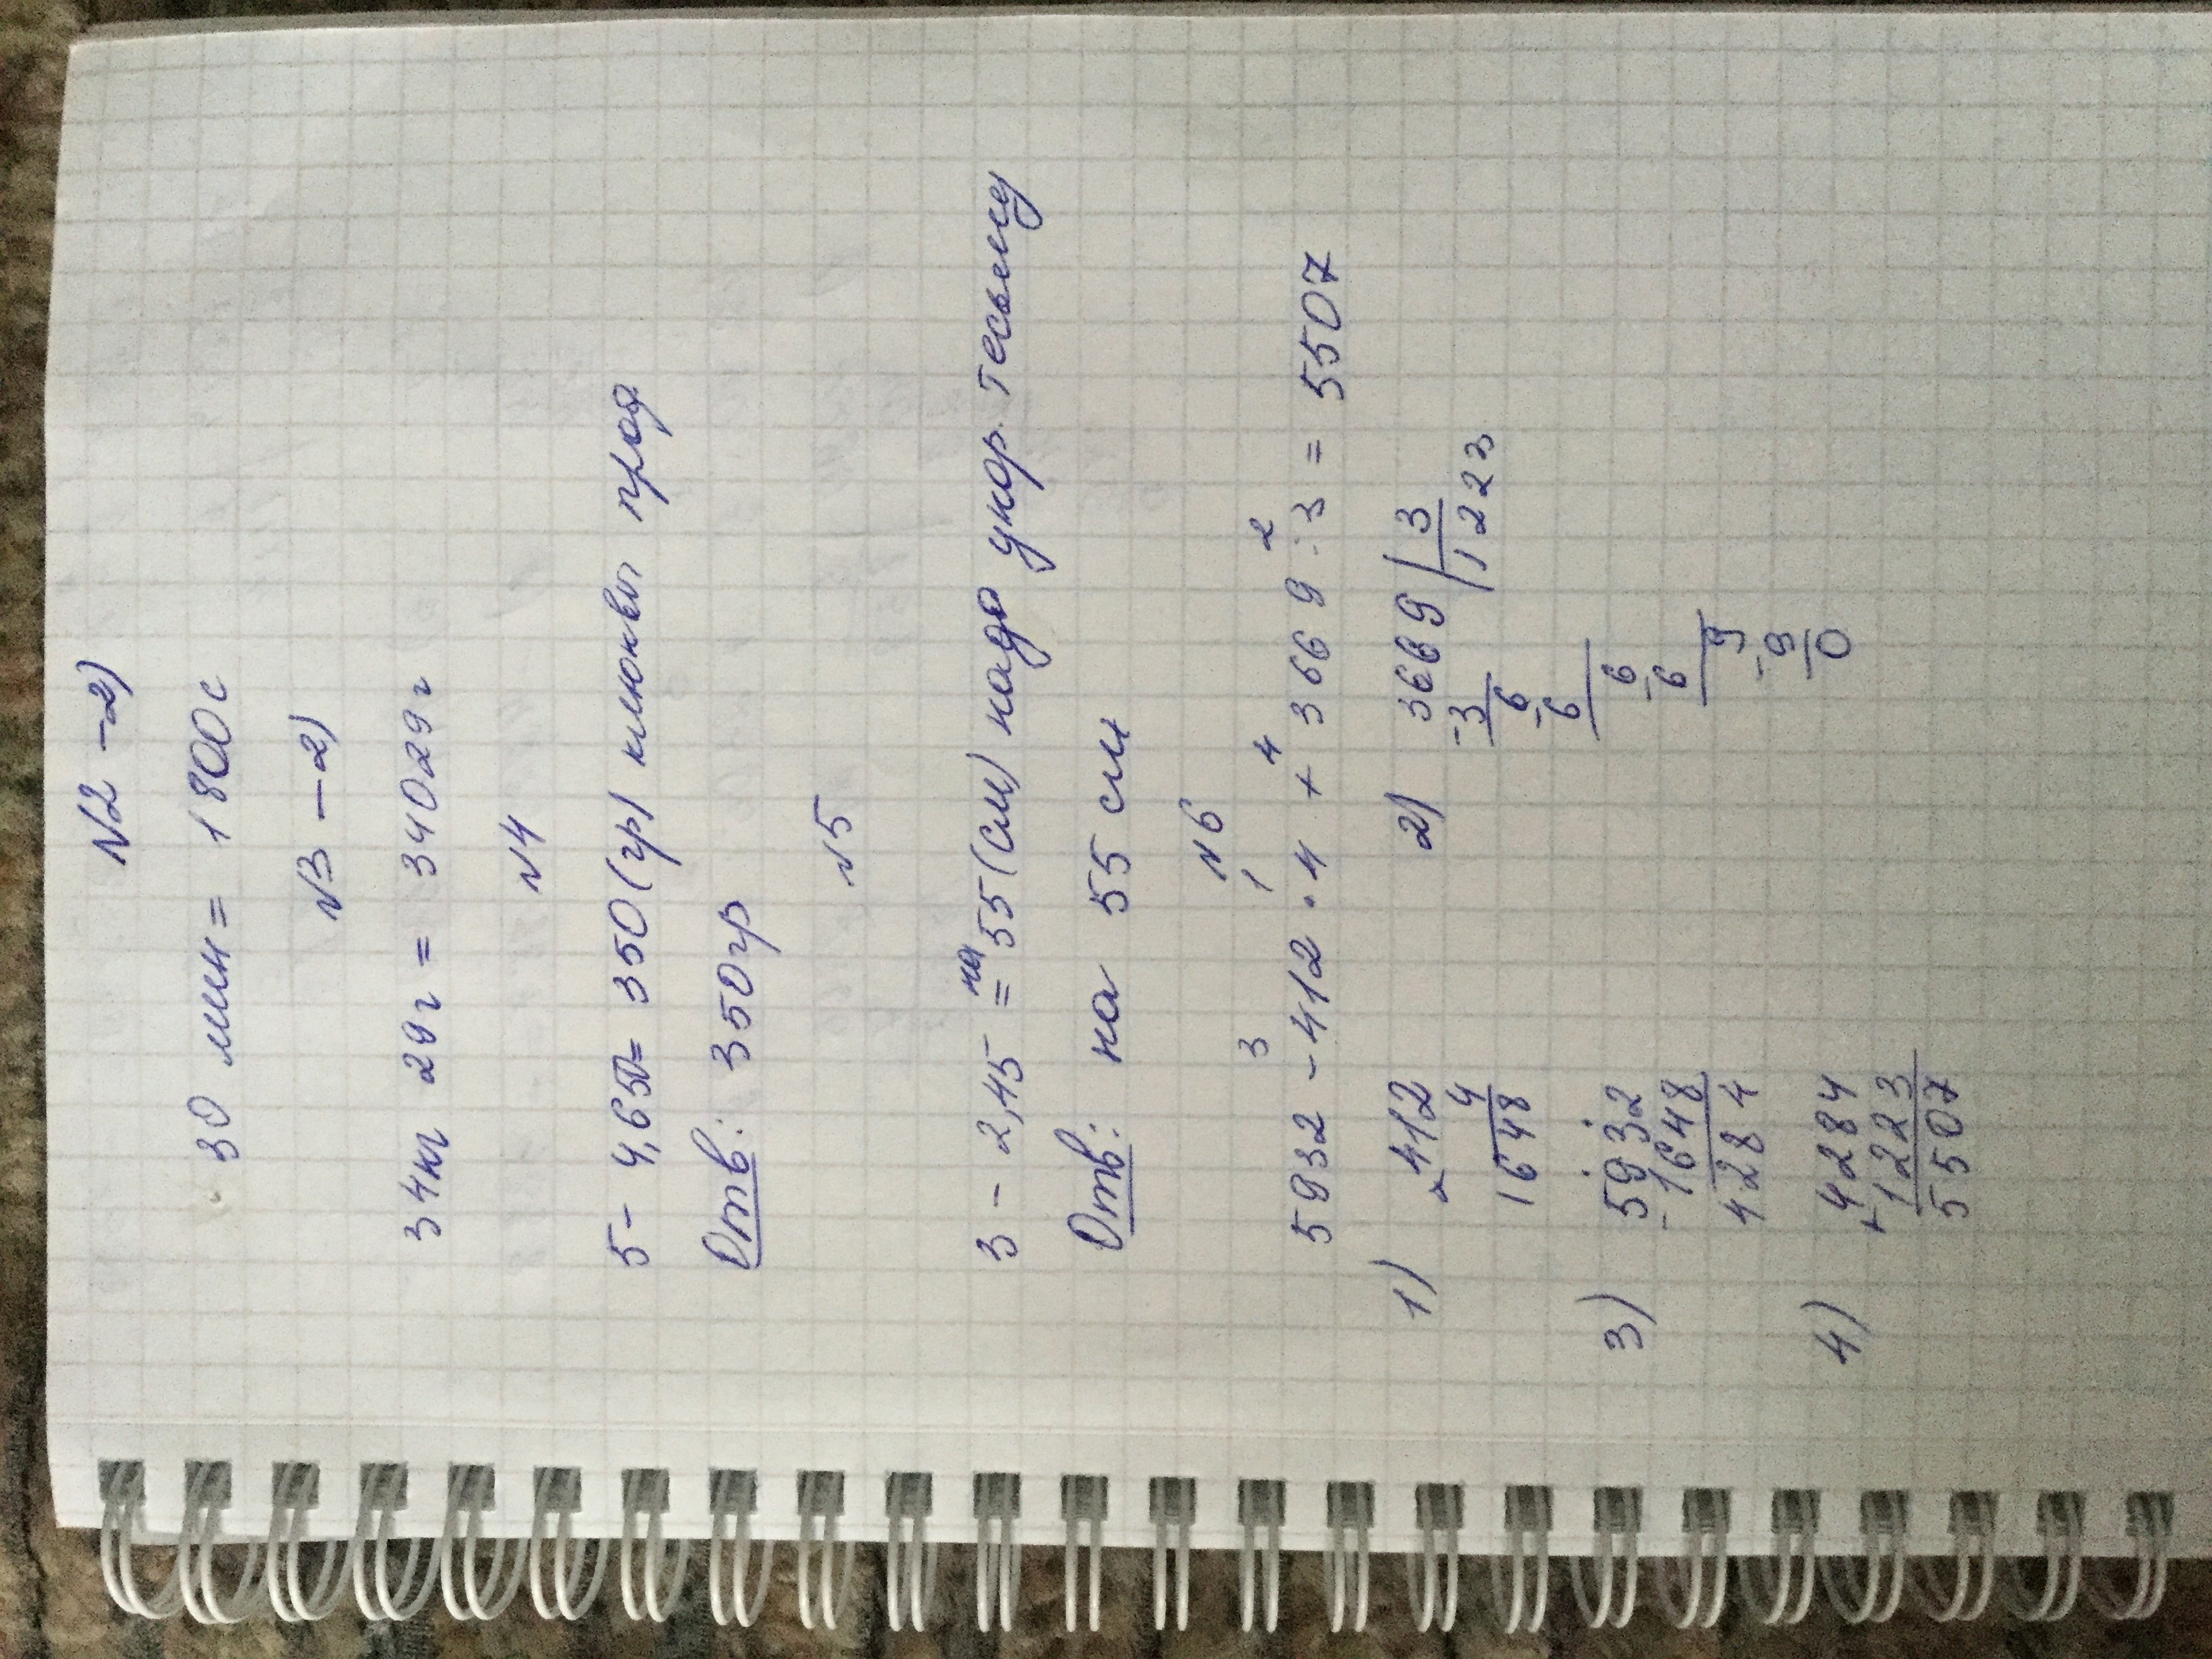 №2 -2)
30 мин = 1800 с
№3 -2)
34кг 29г = 34029 г
№4
5 - 4,650 = 350 (гр) клюквы прод.
Отв: 350 гр
№5
3 - 2,45 = на 55 (см) надо укор. тесьму
Отв: на 55 см
№6
3 1 4 2
5932 - 412 · 4 + 3669 : 3 = 5507
1) × 412 2) 3669 | 3
4 - 3 1223
1648 6
- 6
3) - 5932 6
1648 - 6
4284 9
- 9
4) + 4284 0
1223
5507